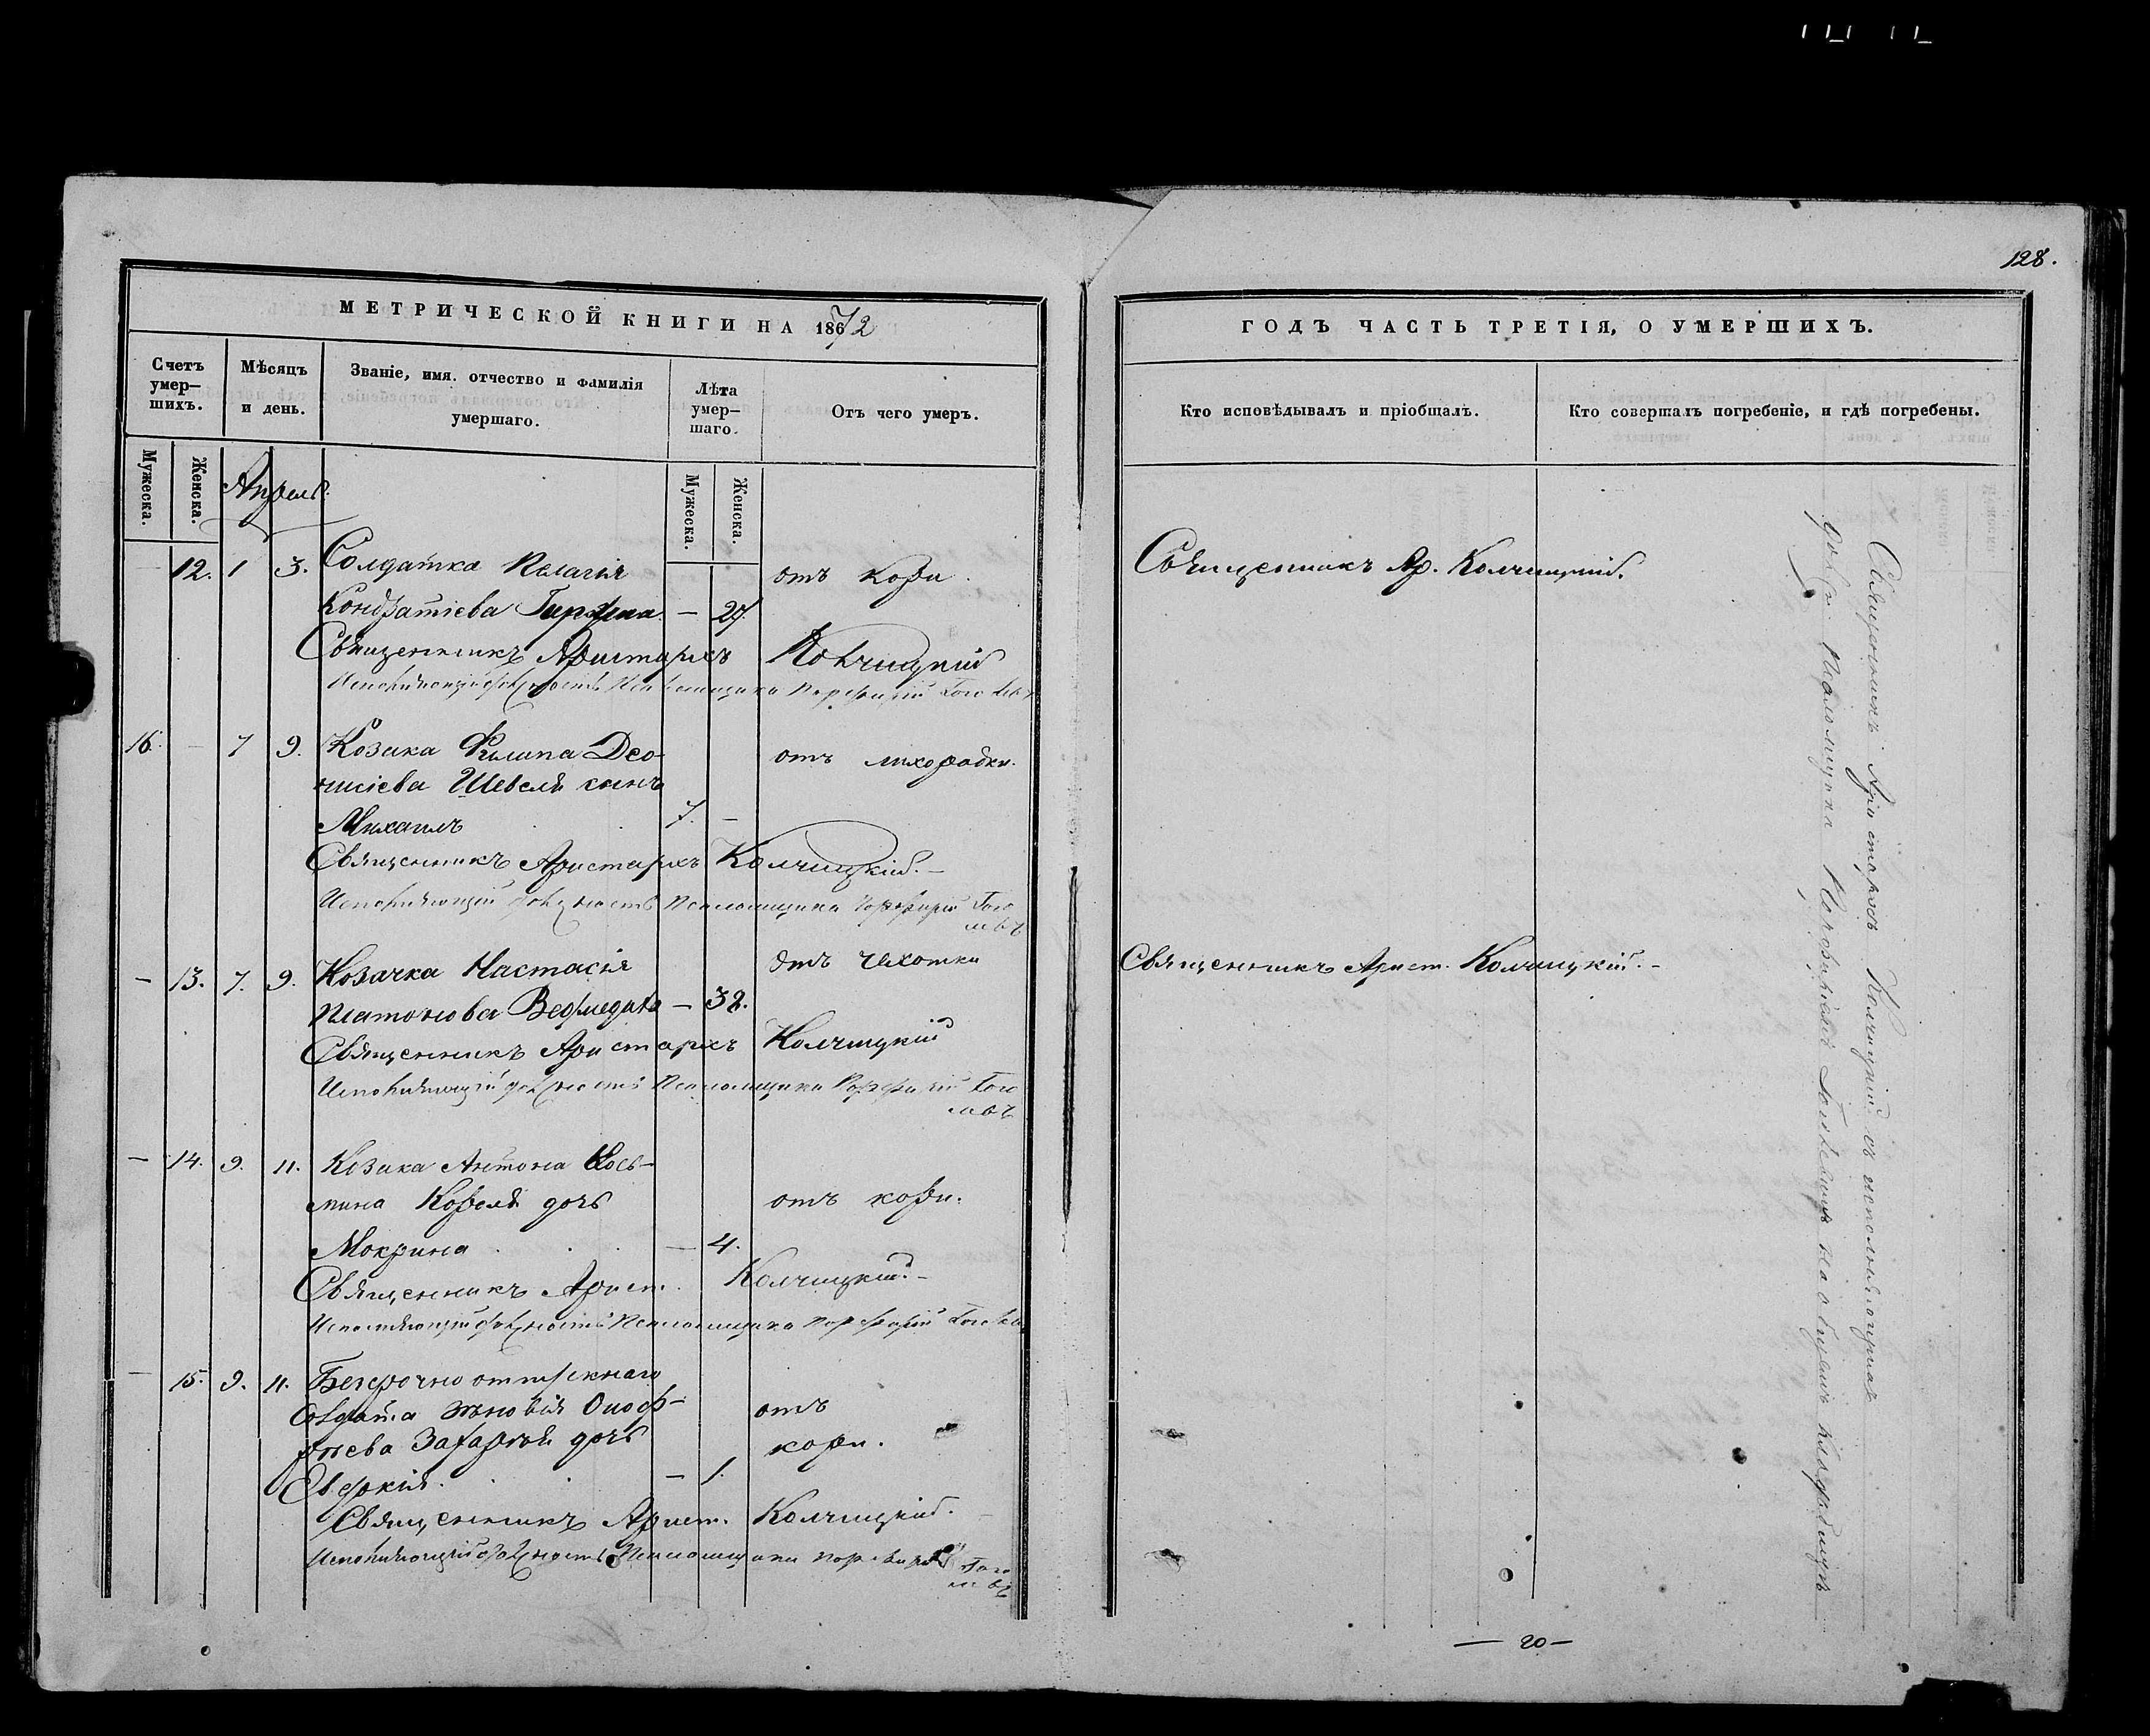 128.
МЕТРИЧЕСКОЙ КНИГИ НА 1872
ГОДЪ ЧАСТЬ ТРЕТІЯ, О УМЕРШИХЪ.
Счетъ умер–шихъ.
Мѣсяцъ и день.
Званіе, имя. отчество и фамилія умершаго.
Лѣта умер–шаго.
Отъ чего умеръ.
Кто исповѣдывалъ и пріобщалъ.
Кто совершалъ погребеніе, и гдѣ погребены.
Мужеска.
Женска.
Мужеска.
Женска.
Апрель
12. 1 3. Солдатка Пелагія отъ кори.
Кондратіева — 27.
Священникъ Аристархъ Колчицкій
Исполняющій должность Псаломщика Порфирій
Священникъ Ар. Колчицкій.
16. — 7 9. Козака Филипа Део- отъ лихорадки.
нисіева Шевеля сынъ
Михаилъ 7. —
Священникъ Аристархъ Колчицкій. —
Исполняющій должность Псаломщика Порфирій
— 13. 7. 9. Козачка Настасія отъ чахотки
Платонова — 32.
Священникъ Аристархъ Колчицкій
Исполняющій должность Псаломщика Порфирій
Священникъ Арист. Колчицкій. —
— 14. 9. 11. Козака Антона Кось-
мина Кореля дочь отъ кори.
Мокрина — 4.
Священникъ Арист. Колчицкій. —
Исполняющій должность Псаломщика Порфирій
— 15. 9. 11. Безсрочно отпускнаго
Солдата Оноф- отъ
ріева дочь кори.
— 1.
Священникъ Арист. Колчицкій.
Исполняющій должность Псаломщика Порфирій
Священникъ Аристархъ Колчицкій съ исполняющимъ
должн. Псаломщика Порфиріемъ на общемъ кладбищѣ
— 20 —